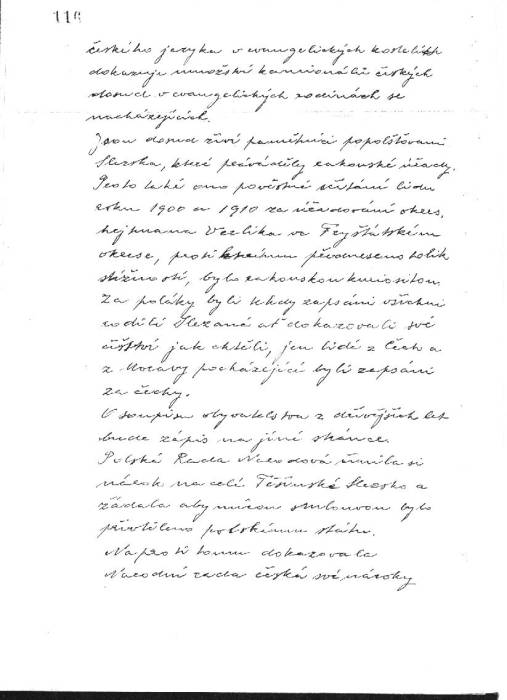 116
českého jazyka v evangelických kostelích
dokazuje množství kancionálů českých
dosud v evangelických rodinách se
nacházejících.
Jsou dosud živí pamětníci popolštování
Slezska, které prováděly rakouské úřady.
Proto také ono pověstné sčítání lidu
roku 1900 a 1910 za úřadování okres.
hejtmana ve Fryštátském
okrese, proti kterému předneseno tolik
stížností, bylo rakouskou kuriositou.
Za poláky byli tehdy zapsáni všichni
rodilí Slezané ať dokazovali své
češství jak chtěli, jen lidé z Čech a
z Moravy pocházející byli zapsáni
za čechy.
O soupisu obyvatelstva z dřívějších let
bude zápis na jiné stránce.
Polská Rada Narodová činila si
nárok na celé Těšínské Slezsko a
žádala aby mírovou smlouvou bylo
přivtěleno polskému státu.
Naproti tomu dokazovala
Narodní rada česká své nároky